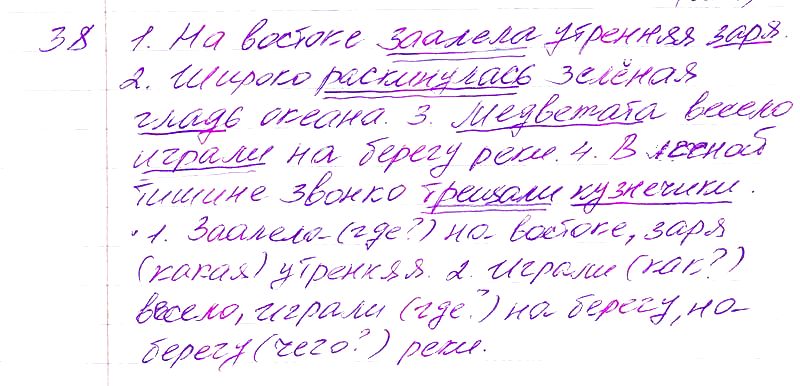 38 1. На востоке заалела утренняя заря.
2. Широко раскинулась зелёная
гладь океана. 3. Медвежата весело
играли на берегу реки. 4. В лесной
тишине звонко трещали кузнечики.
1. Заалела (где?) на востоке, заря
(какая) утренняя. 2. Играли (как?)
весело, играли (где?) на берегу, на
берегу (чего?) реки.